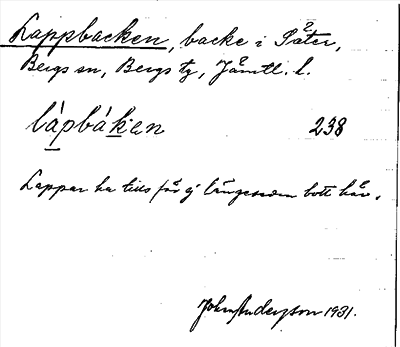 Lappbacken, backe i Såter,
Bergs sn, Bergs tg, Jämtl. l.
lápbáken 238
Lappar ha tills för ej längesedan bott här.
John Anderson 1931.